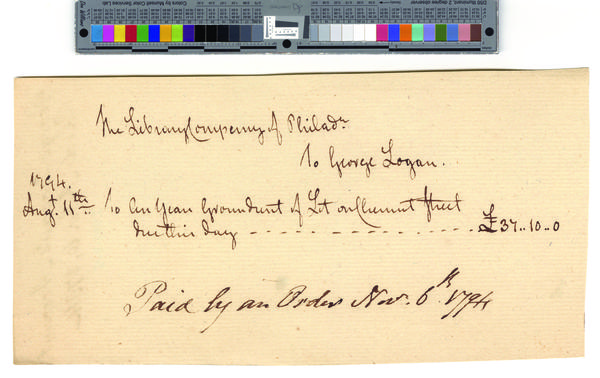 The Library Company of Philada.
To George Logan.
1794.
Augt. 11th. To An Year Groundrent of Lot on Chesnut Street
due this day - - - - - - - - - - - - £37..10..0
Paid by an Order Nov. 6th 1794